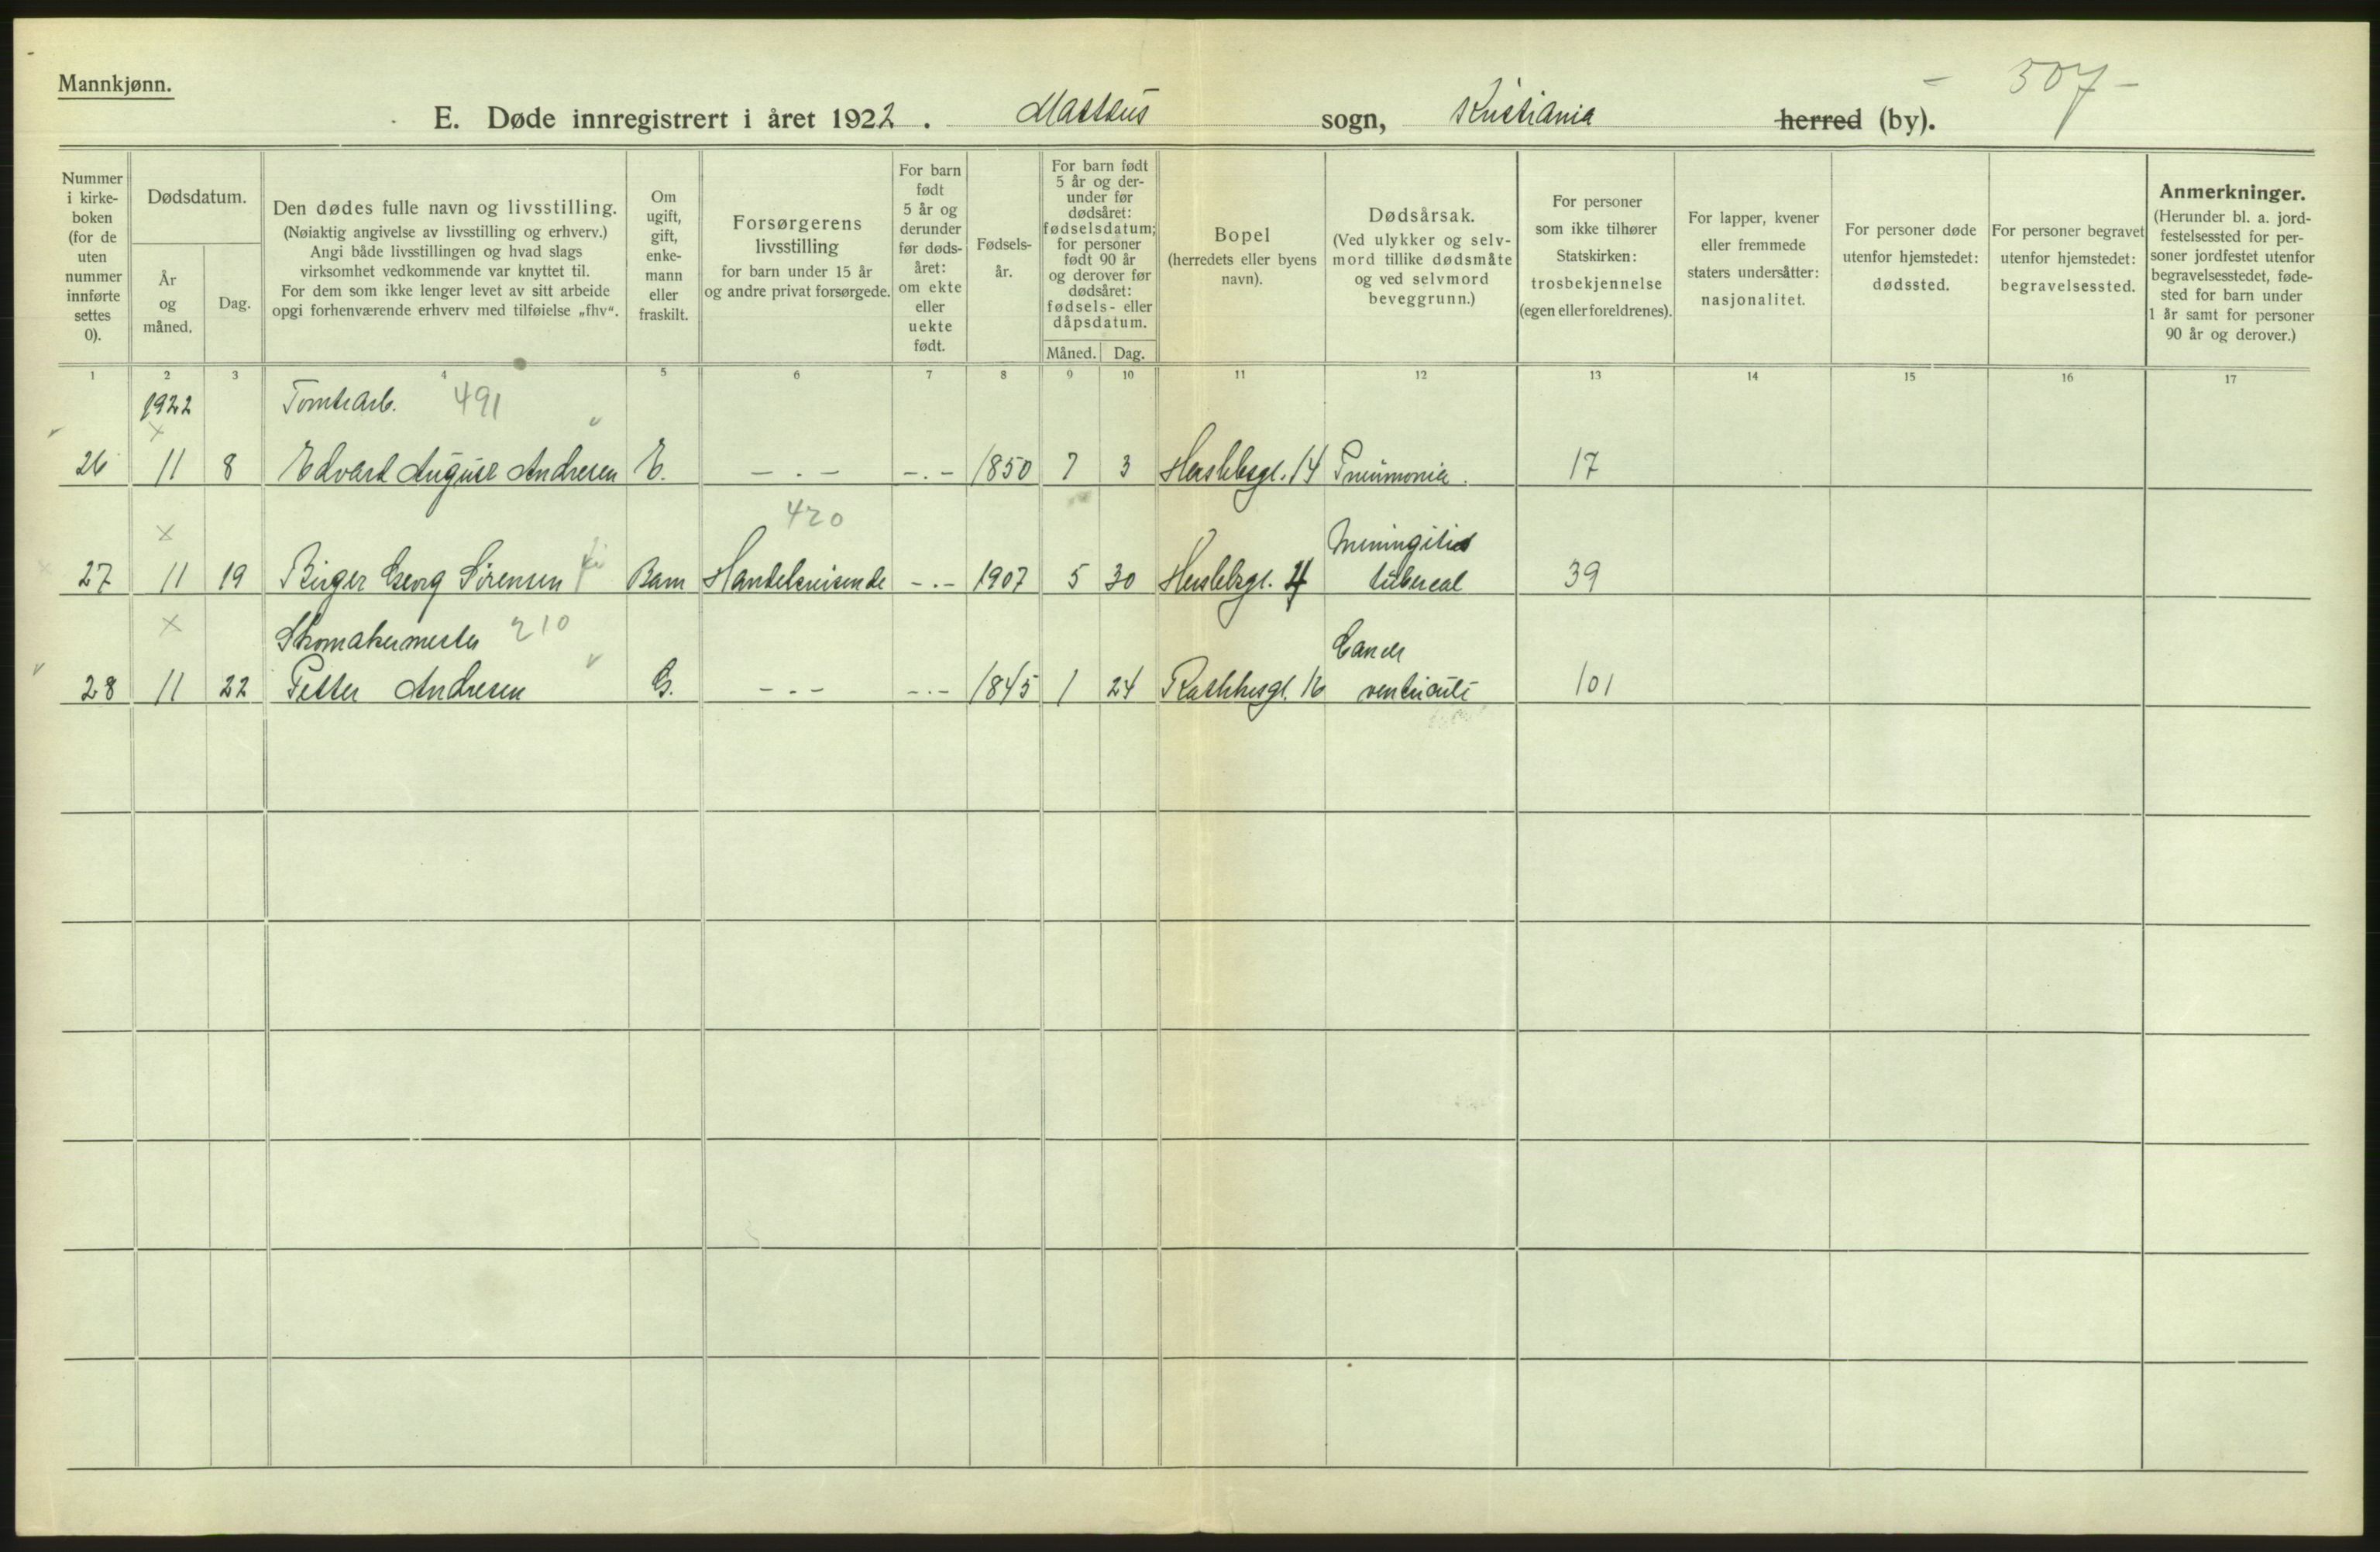 Mannkjønn.
507
E. Døde innregistrert i året 1922. Matteus sogn, Kristiania herred (by).
Nummer i kirke- boken (for de uten nummer innførte settes 0).
Dødsdatum.
År og måned.
Dag.
Den dødes fulle navn og livsstilling.
(Nøiaktig angivelse av livsstilling og erhverv.)
Angi både livsstillingen og hvad slags
virksomhet vedkommende var knyttet til.
For dem som ikke lenger levet av sitt arbeide
opgi forhenværende erhverv med tilføielse „fhv“.
Om ugift, gift, enke- mann eller fraskilt.
Forsørgerens
livsstilling
for barn under 15 år
og andre privat forsørgede.
For barn født 5 år og derunder før døds- året: om ekte eller uekte født.
Fødsels- år.
For barn født 5 år og der- under før dødsåret: fødselsdatum; for personer født 90 år og derover før dødsåret: fødsels- eller dåpsdatum.
Måned. Dag.
Bopel
(herredets eller byens
navn).
Dødsårsak.
(Ved ulykker og selv-
mord tillike dødsmåte
og ved selvmord
beveggrunn.)
For personer
som ikke tilhører
Statskirken:
trosbekjennelse
(egen eller foreldrenes).
For lapper, kvener
eller fremmede
staters undersåtter:
nasjonalitet.
For personer døde
utenfor hjemstedet:
dødssted.
For personer begravet
utenfor hjemstedet:
begravelsessted.
Anmerkninger.
(Herunder bl. a. jord-
festelsessted for per-
soner jordfestet utenfor
begravelsesstedet, føde-
sted for barn under
1 år samt for personer
90 år og derover.)
1 2 3 4 5 6 7 8 9 10 11 12 13 14 15 16 17
1922 Tomtearb. 491
26 11 8 Edvard August Andresen E. - . - - . - 1850 7 3 Herslebsgt. 14 Pneumonia. 17
420
Meningitis
27 11 19 Birger Georg Sörensen Barn Handelsreisende - . - 1907 5 30 Herslebsgt. 4 tubercul 39
Skomakermester 210 Cancer
28 11 22 Petter Andresen G. - . - - . - 1845 1 24 Rathkesgt. 16 ventriculi 101